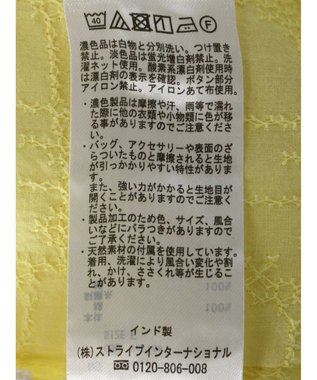 40
F
濃色品は白物と分別洗い。つけ置き
禁止。淡色品は蛍光増白剤禁止。洗
濯ネット使用。酸素系漂白剤使用時
は漂白剤の表示を確認。ボタン部分
アイロン禁止。アイロンあて布使用。
・濃色製品は摩擦や汗、雨等で濡れ
た際に他の衣類や小物類に色が移
る事がありますのでご注意くださ
い。
・バッグ、アクセサリーや表面のざ
らついたものと摩擦されると生地
が引っかかりやすい特性がありま
す。
また、強い力がかかると生地目が
開くことがありますのでご注意く
ださい。
・製品加工のため色、サイズ、風合
いなどにバラつきがありますのでご
了承ください。
・天然素材の付属を使用しています。
着用、洗濯により風合い変化や割
れ、かけ、ささくれ等が生じるこ
とがあります。
インド製
(株)ストライプインターナショナル
0120-806-008